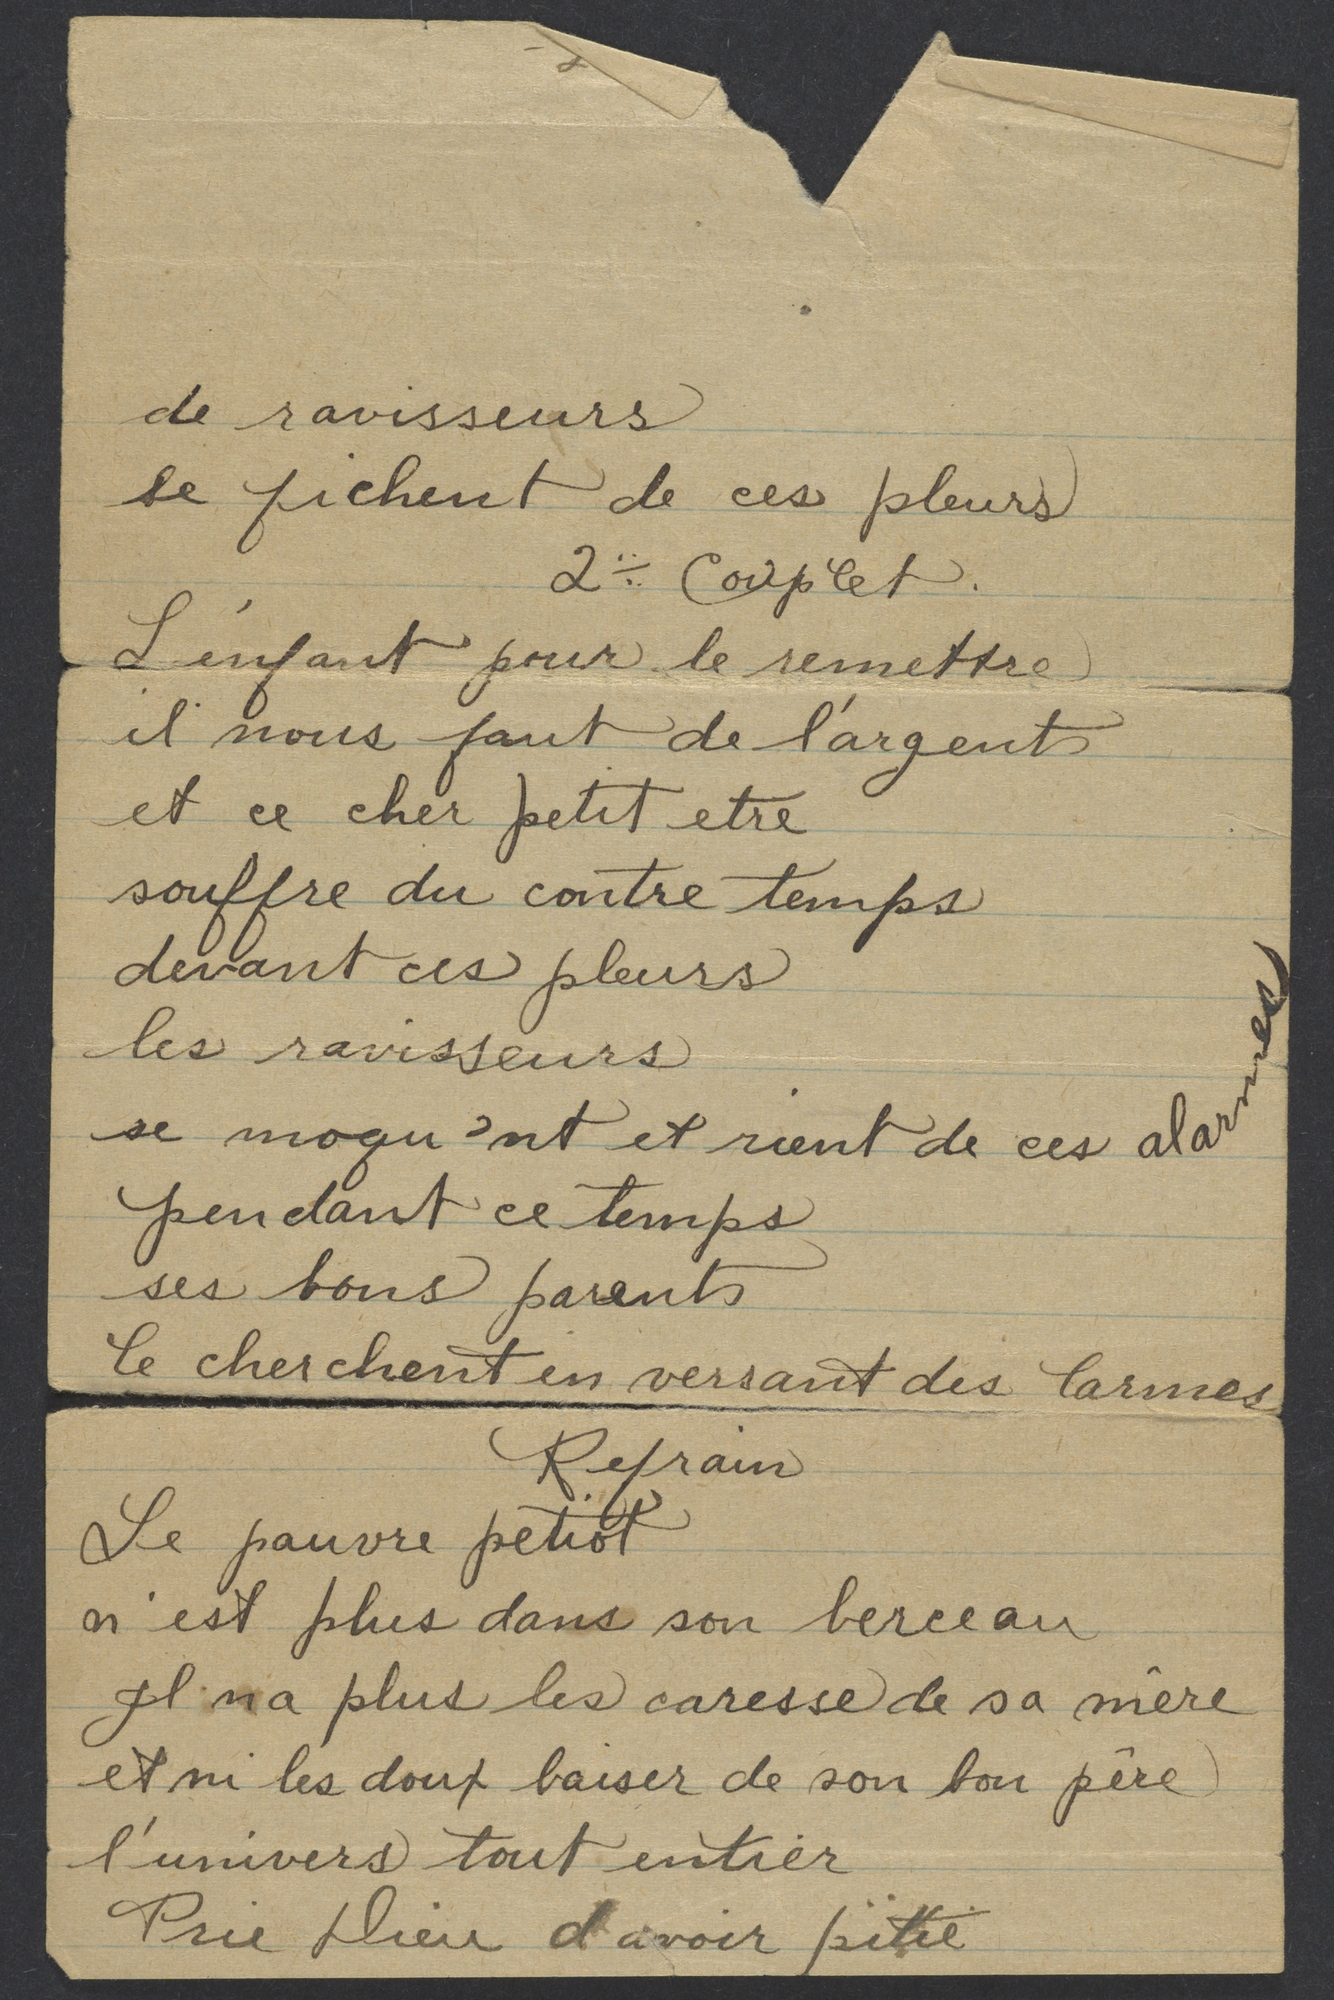 -2
de ravisseurs
se fichent de ces pleurs
2e Couplet.
L'énfant pour le remettre
il nous faut de l'argent
et ce cher petit etre
souffre du contre temps
devant ces pleurs
les ravisseurs
se moqu'nt et rient de ces alarmes
pendant ce temps
ses bons parents
le cherchent en versant des larmes
Refrain
Le pauvre petiot
n'est plus dans son berceau
Il n'a plus les caresse de sa mère
et ni les doux baiser de son bon père
l'univers tout entier
Prie Dieu d'avoir pitié